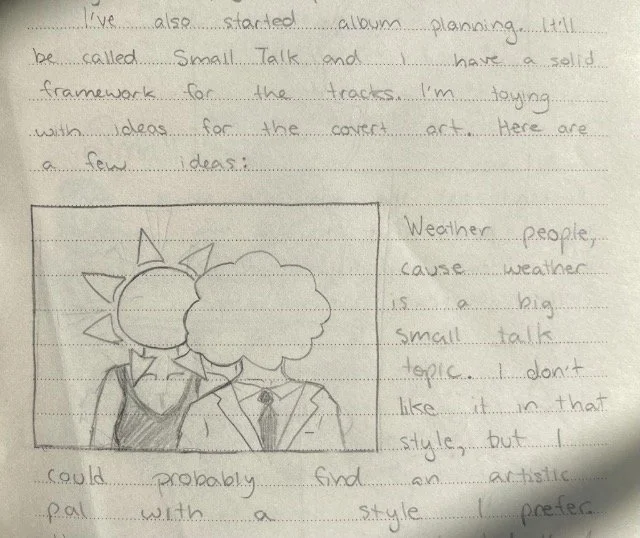 I've also started album planning. It'll
be called Small Talk and I have a solid
framework for the tracks. I'm toying
with ideas for the covert art. Here are
a few ideas:
Weather people,
cause weather
is a big
small talk
topic. I don't
like it in that
style, but I
could probably find an artistic
pal with a style I prefer.